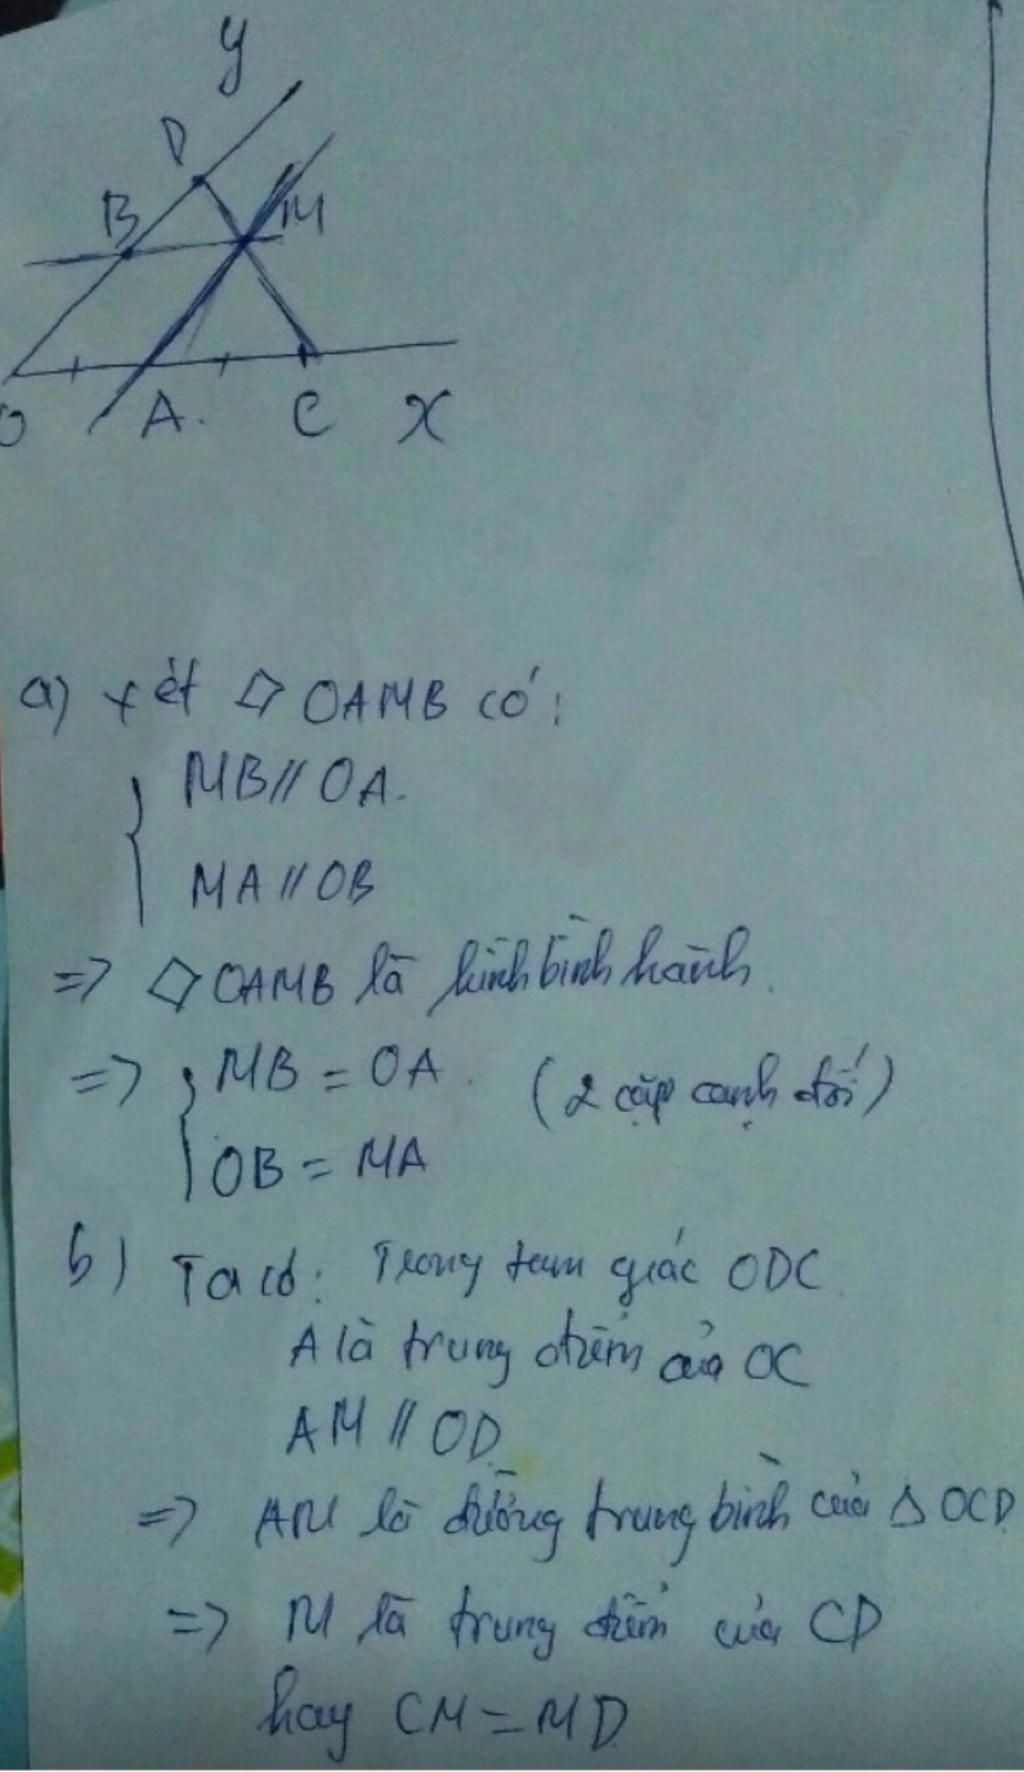 y
D
B
M
O
A.
C
x
a) xét ▱ OAMB có:
MB // OA.
MA // OB
=> ▱ OAMB là hình bình hành.
=> MB = OA. (2 cặp cạnh đối)
OB = MA
b) Ta có: Trong tam giác ODC.
A là trung điểm của OC
AM // OD
=> AM là đường trung bình của Δ OCD
=> M là trung điểm của CD
hay CM = MD